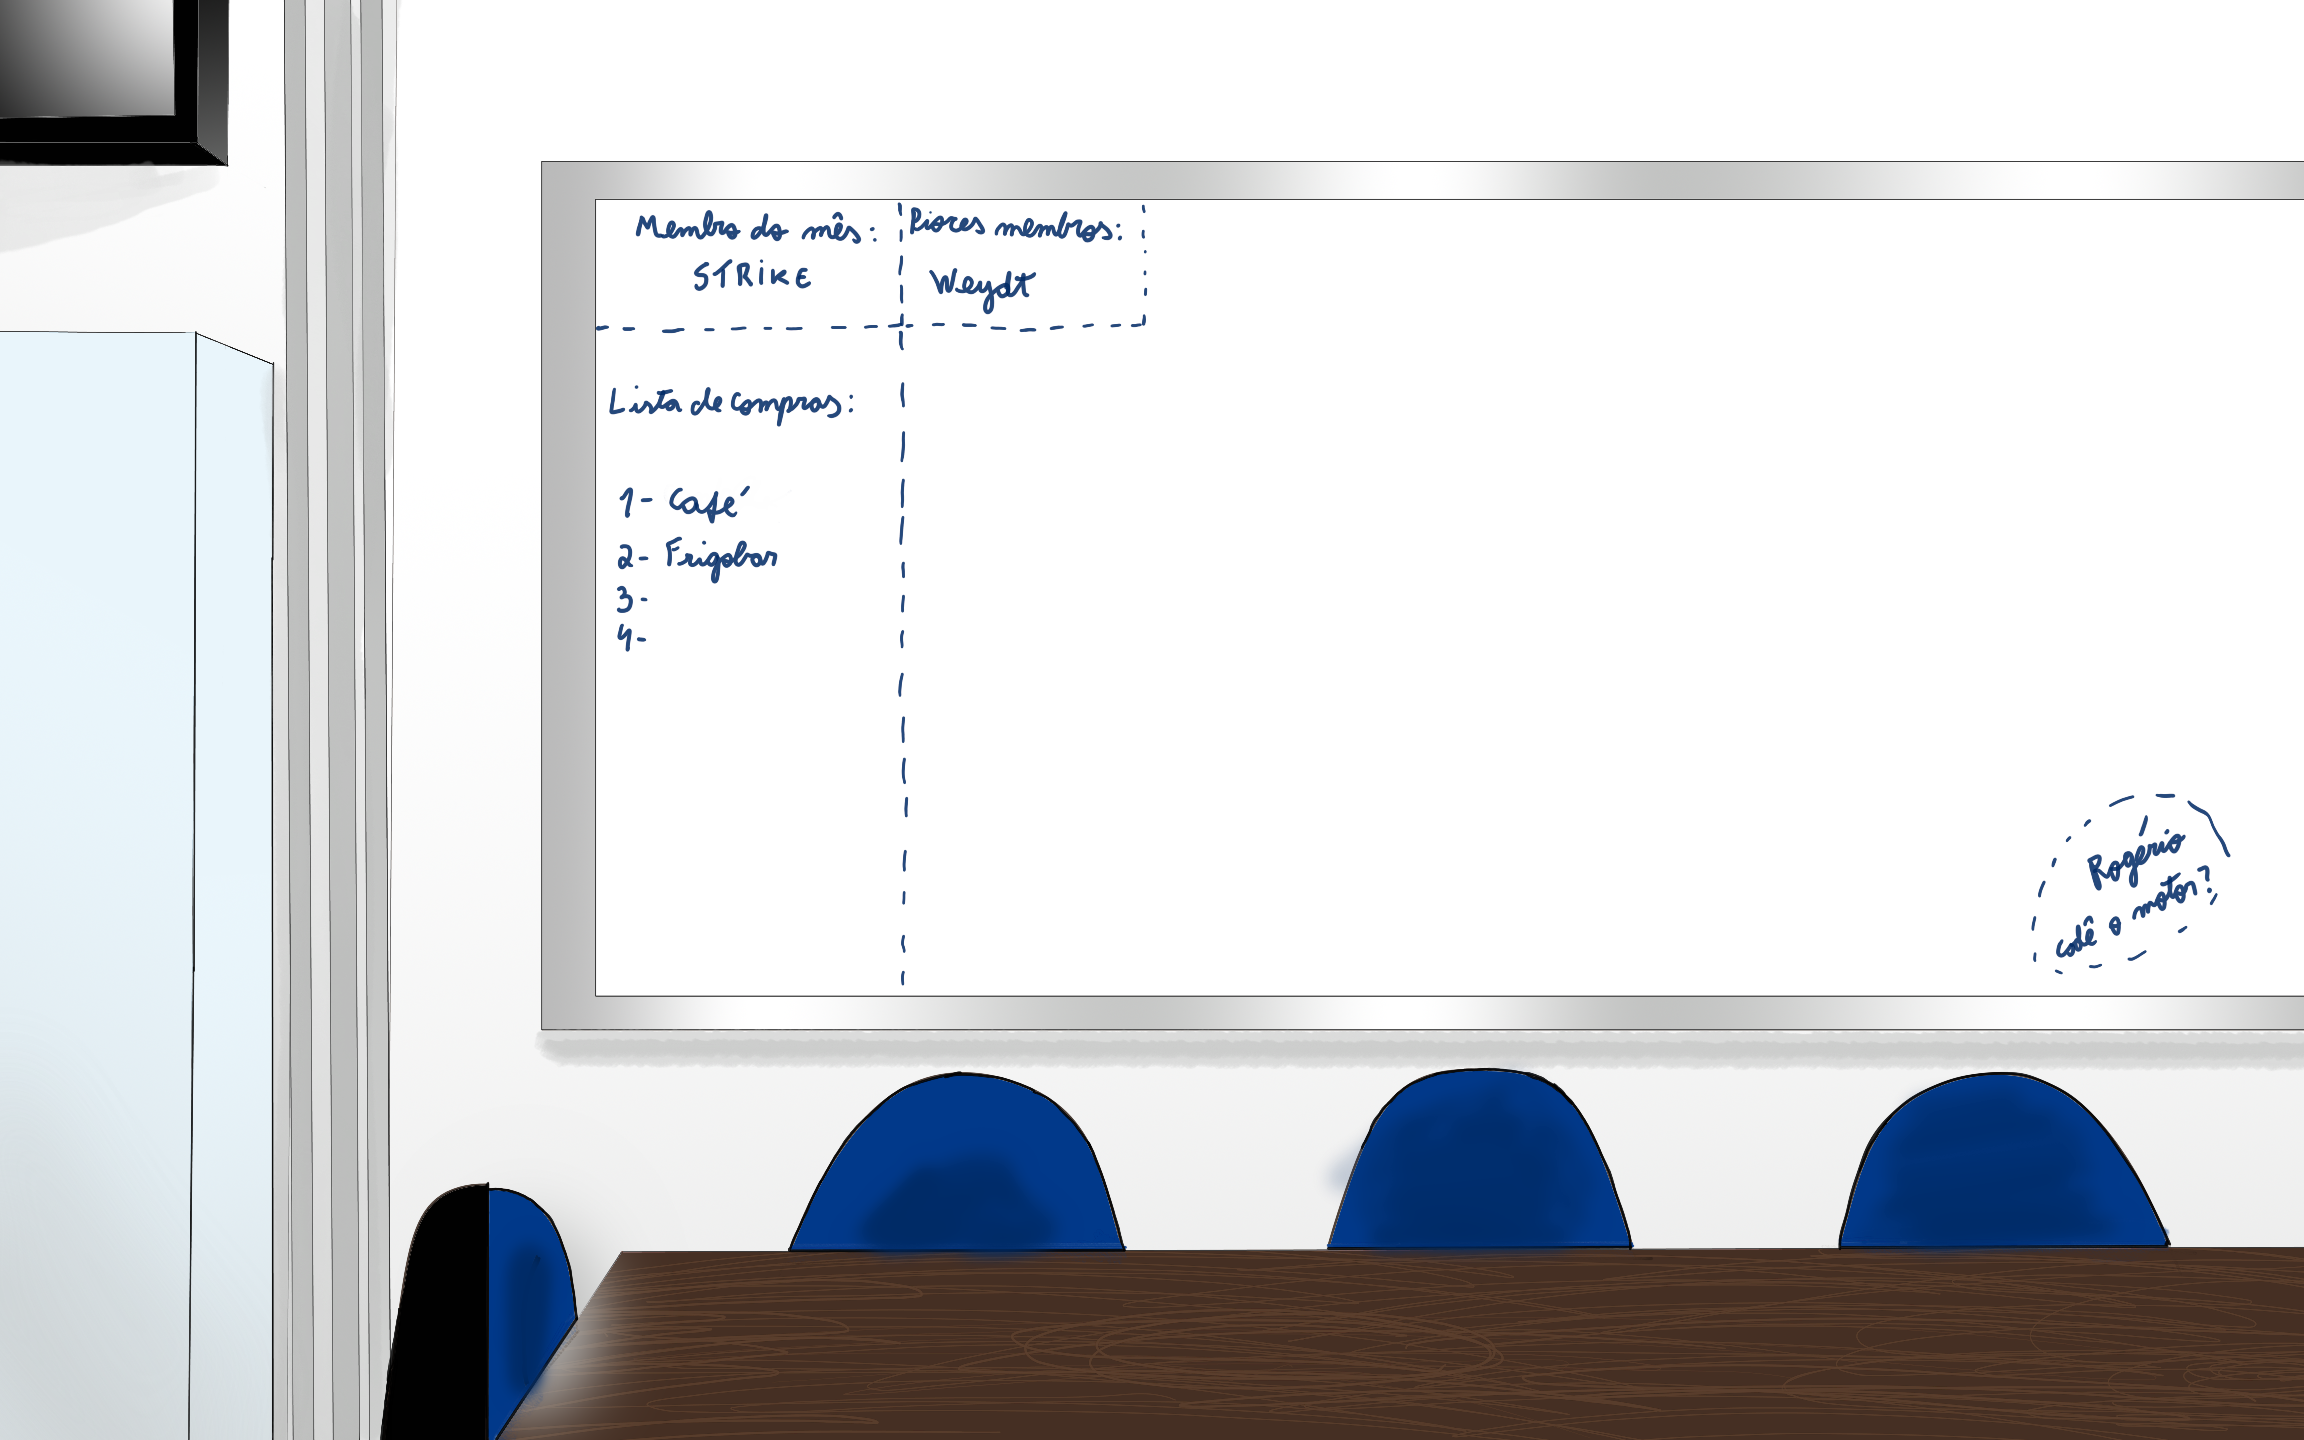 Membro do mês:
STRIKE
Piores membros:
Weydt
Lista de compras:
1- Café
2- Frigobar
3-
4-
Rogério
cadê o motor?